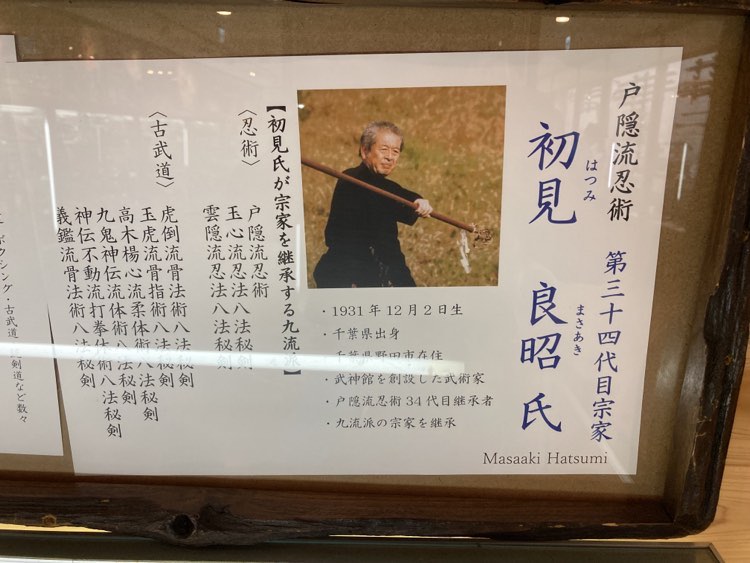 戸隠流忍術 第三十四代目宗家
初見 良昭 氏
はつみ
まさあき
Masaaki Hatsumi
・1931年12月2日生
・千葉県出身
・千葉県野田市在住
・武神館を創設した武術家
・戸隠流忍術34代目継承者
・九流派の宗家を継承
【初見氏が宗家を継承する九流派】
〈忍術〉
戸隠流忍術
玉心流忍法八法秘剣
雲隠流忍法八法秘剣
〈古武道〉
虎倒流骨法術八法秘剣
玉虎流骨指術八法秘剣
高木楊心流柔体術八法秘剣
九鬼神伝流体術八法秘剣
神伝不動流打拳体術八法秘剣
義鑑流骨法術八法秘剣
ボクシング・古武道・剣道など数々